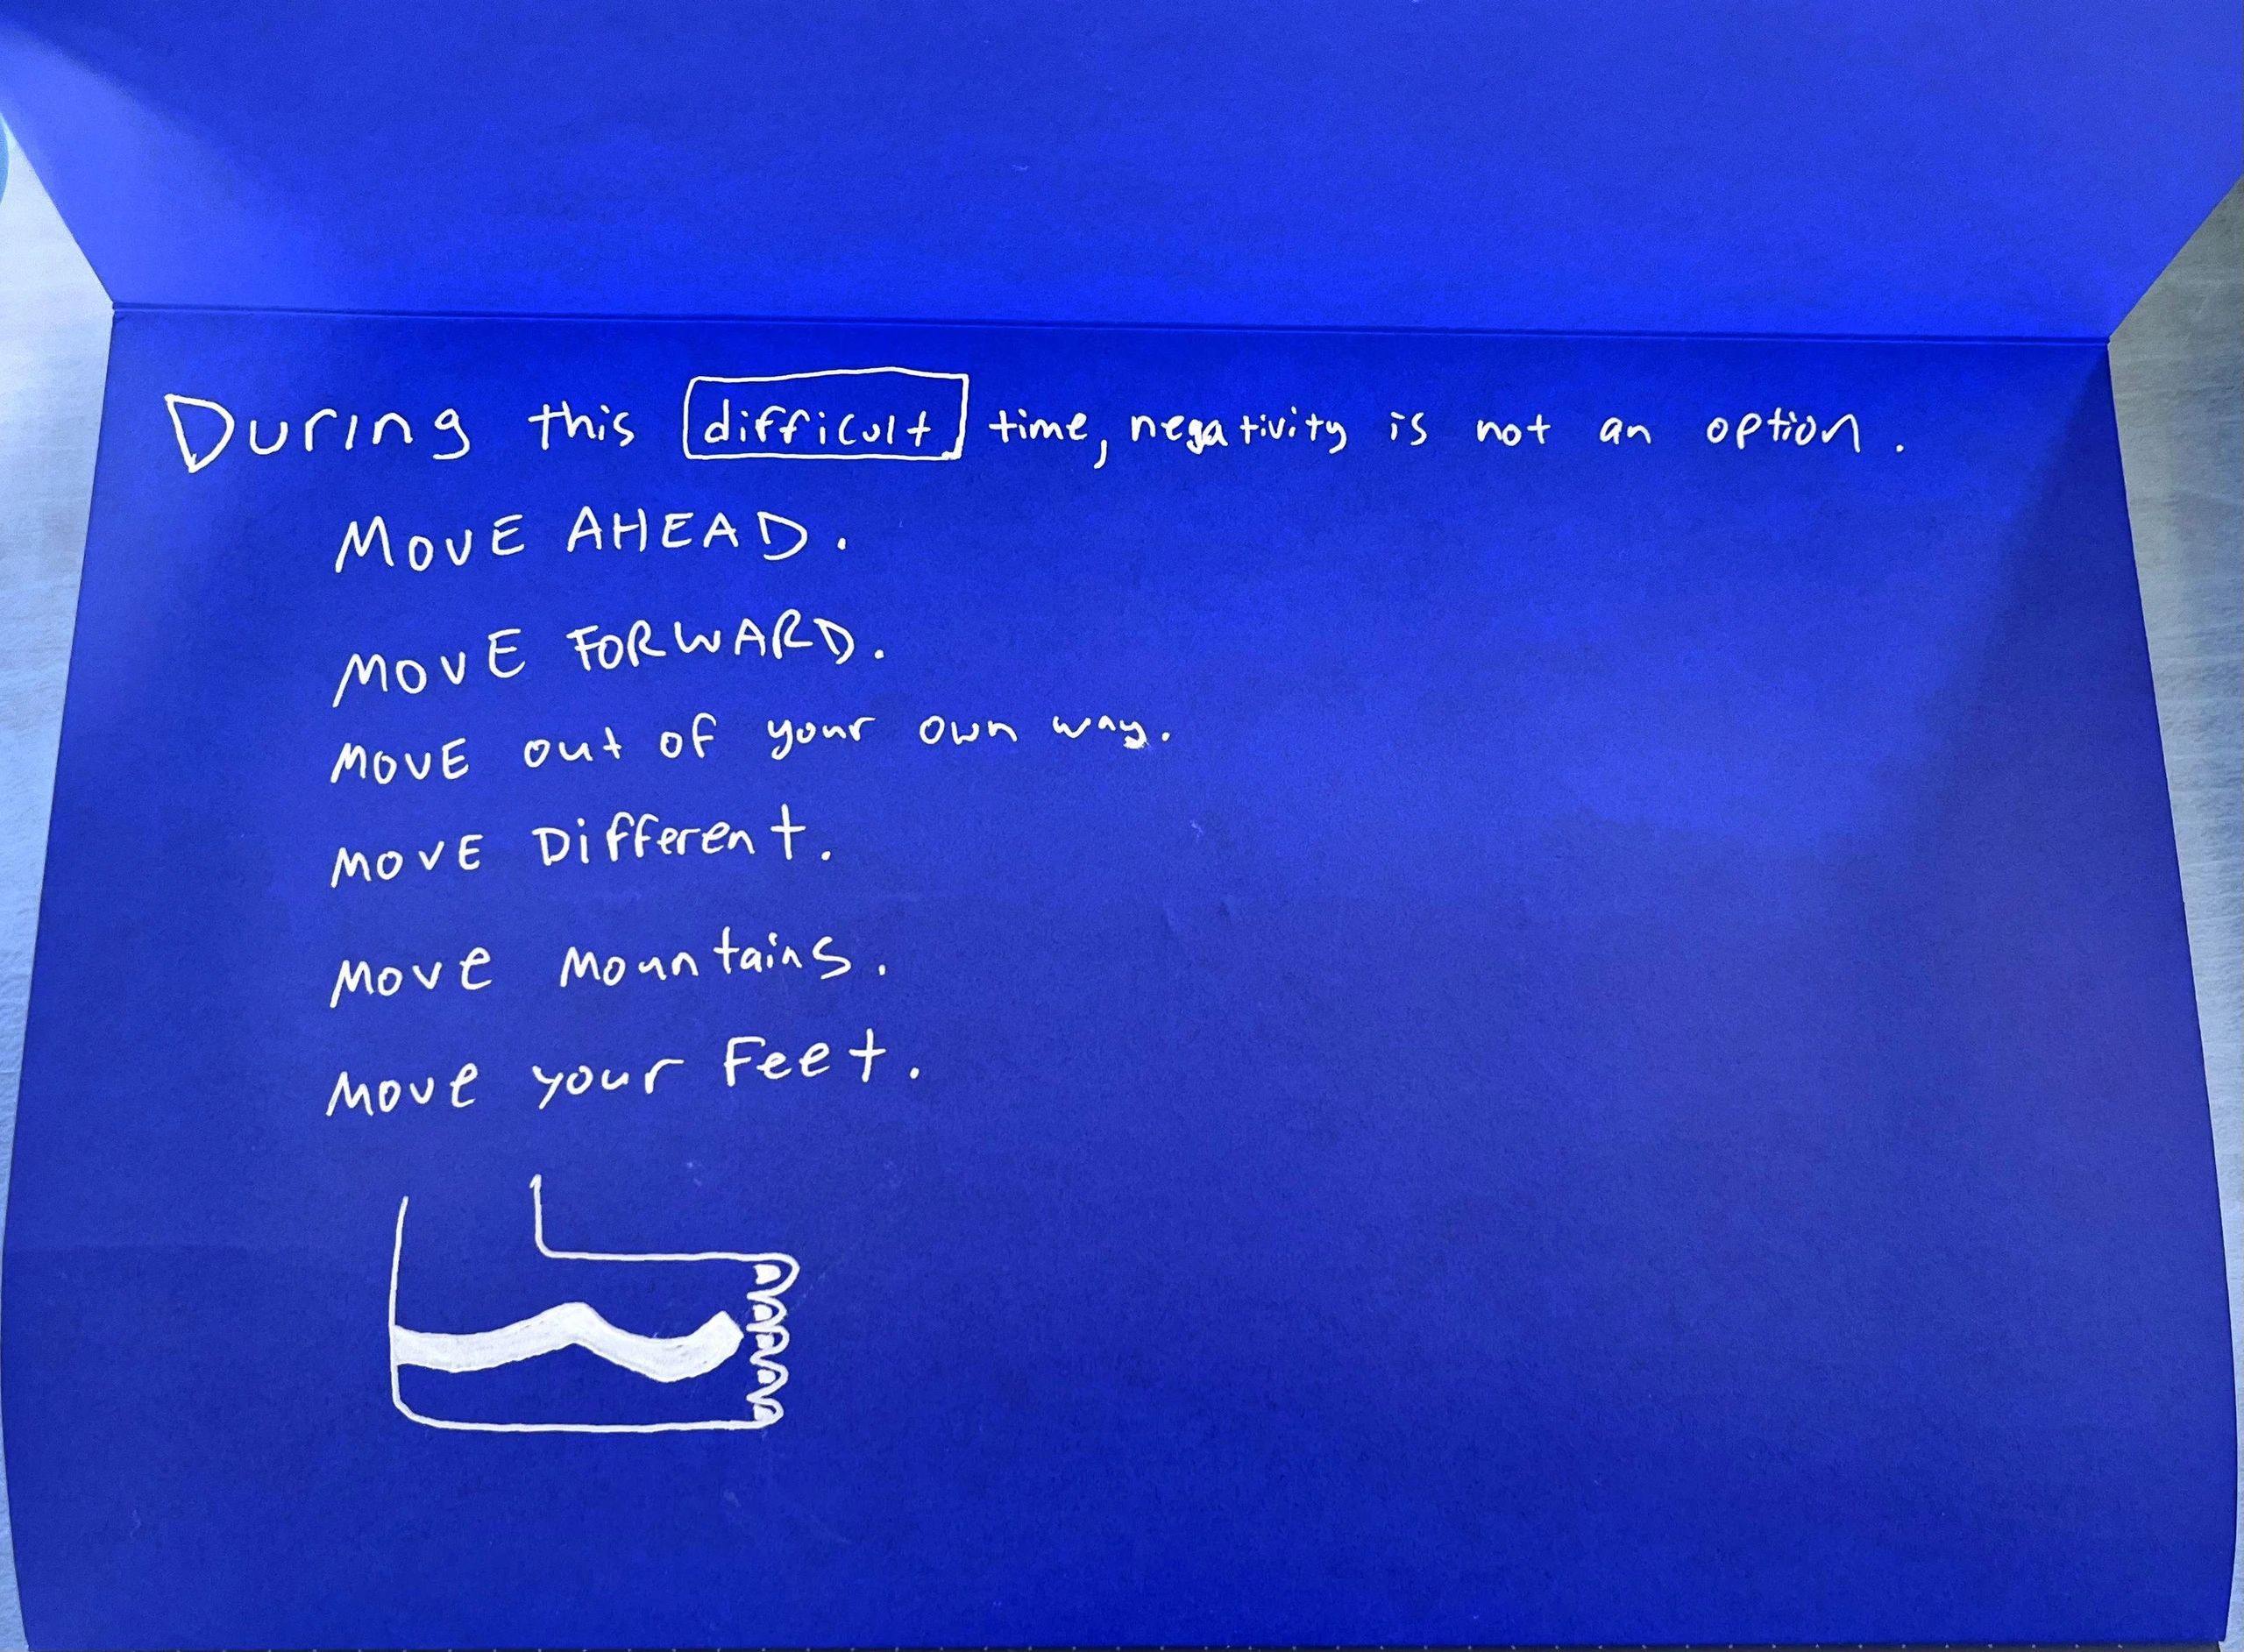 During this difficult time, negativity is not an option.
MOVE AHEAD.
MOVE FORWARD.
MOVE out of your own way.
MOVE Different.
Move Mountains.
Move your Feet.